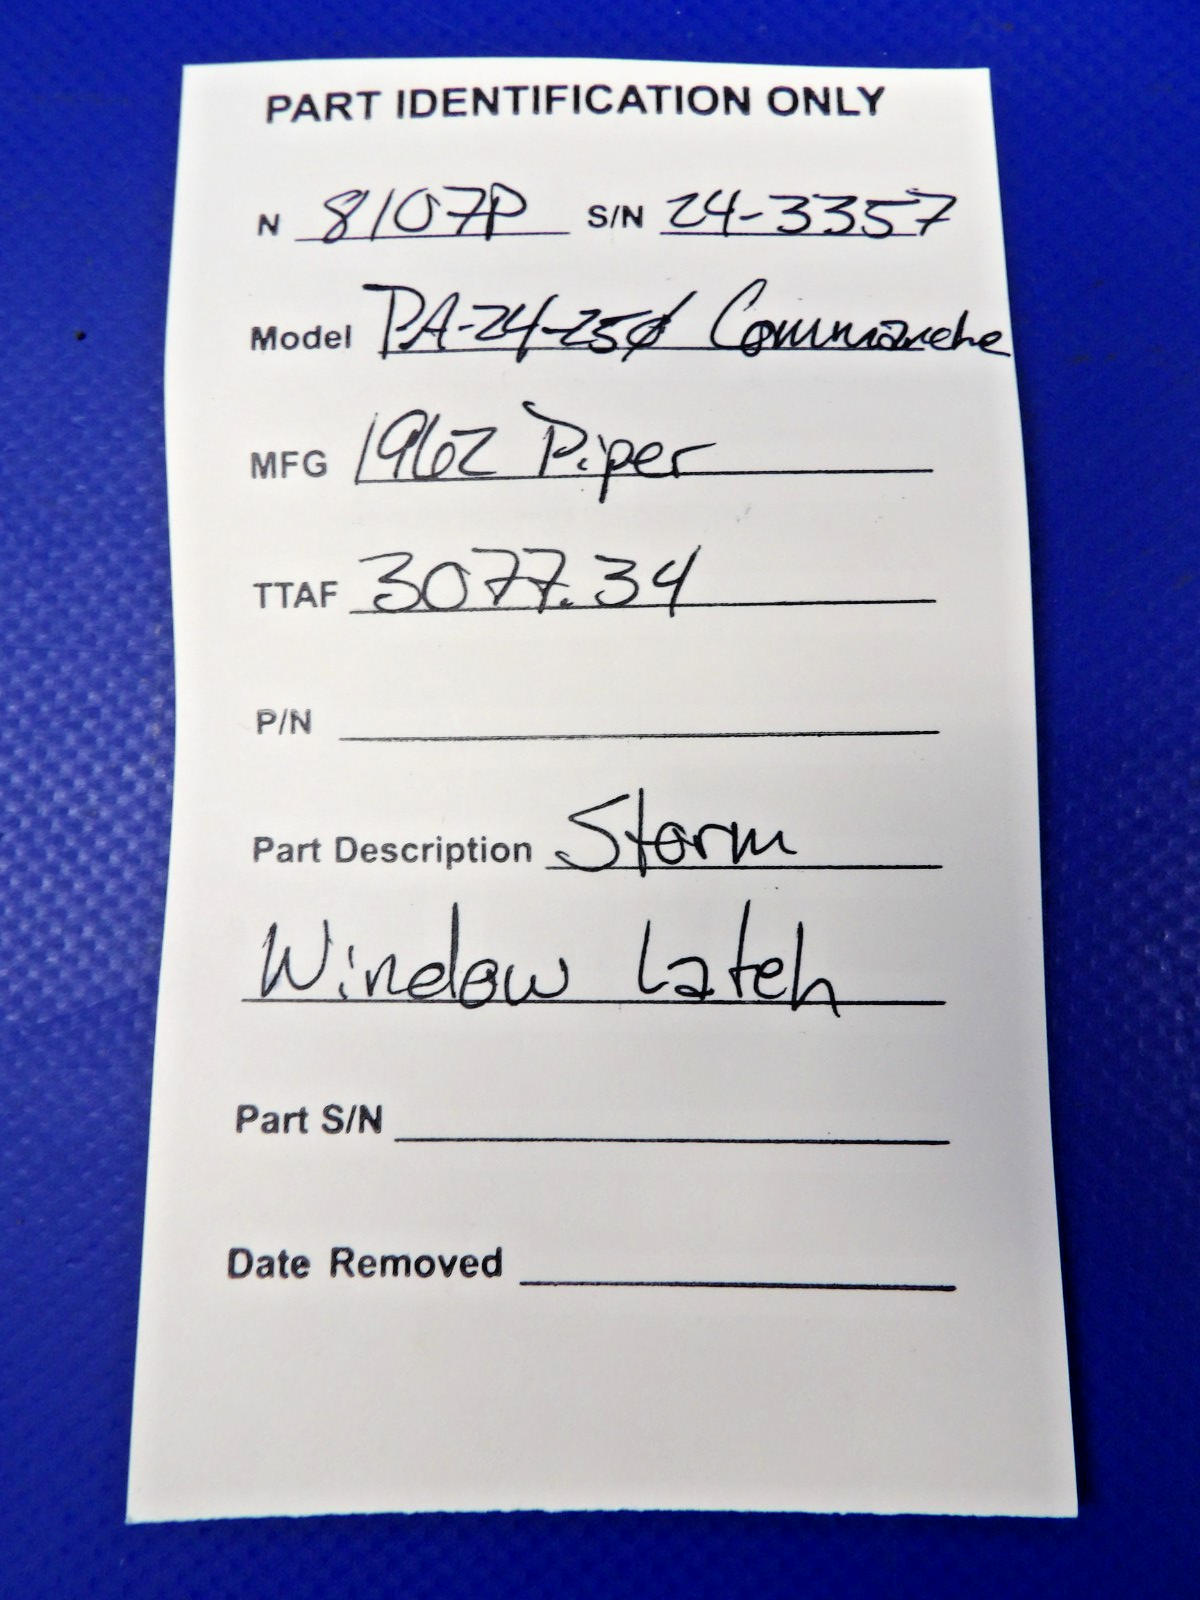 PART IDENTIFICATION ONLY
N 8107P S/N 24-3357
Model PA-24-250 Commanche
MFG 1962 Piper
TTAF 3077.34
P/N
Part Description Storm
Window Latch
Part S/N
Date Removed